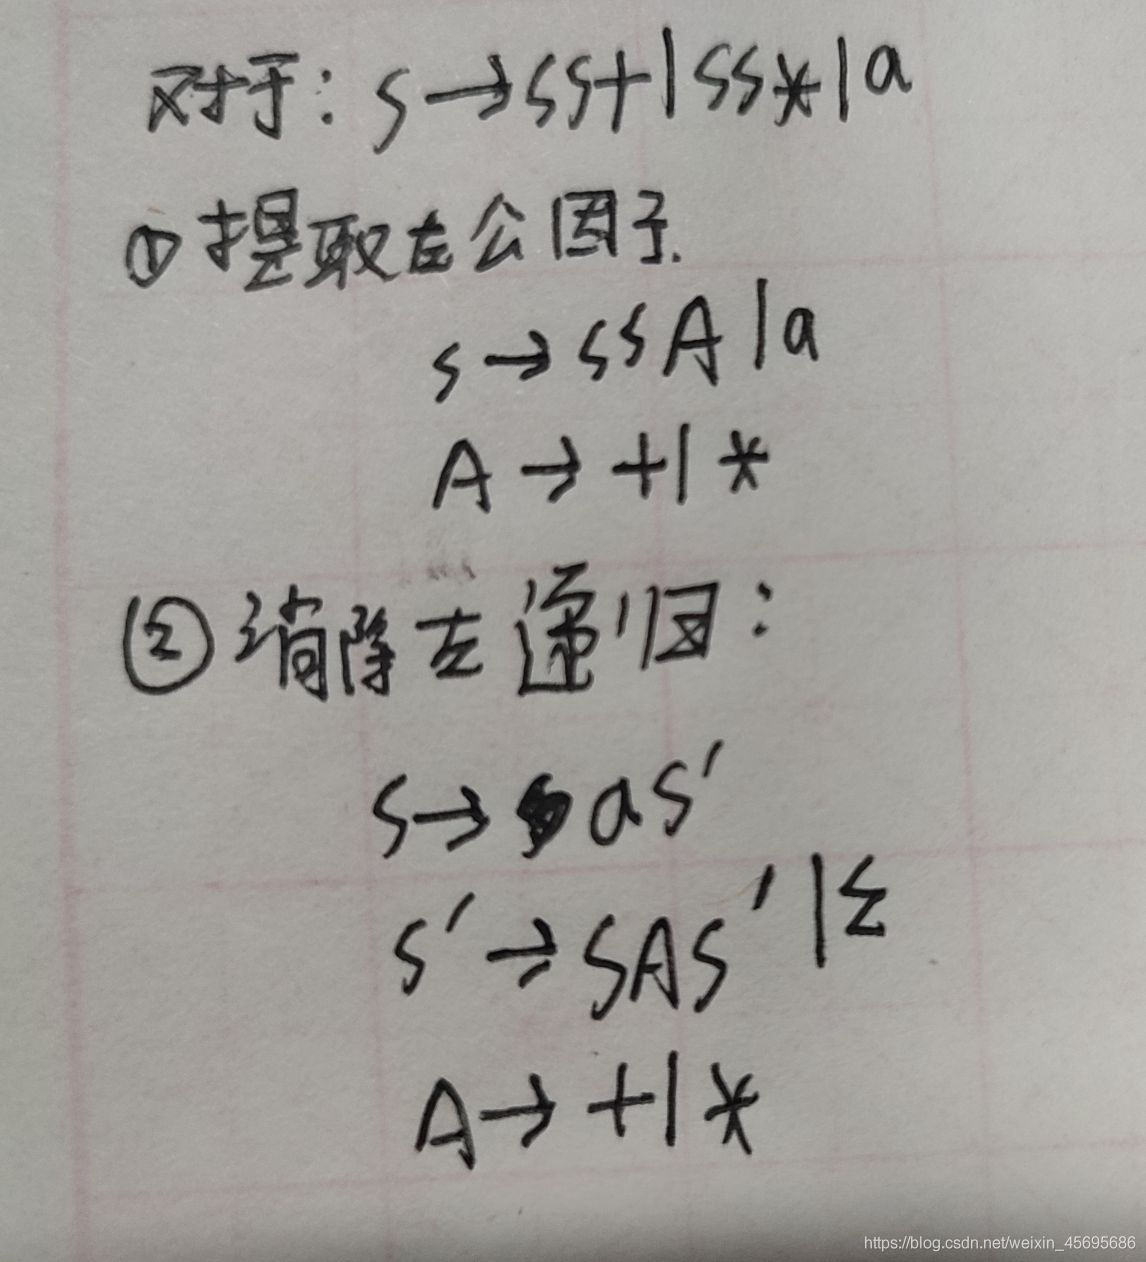 对于: S→SS+|SS*|a
① 提取左公因子.
S→SSA|a
A→+|*
② 消除左递归:
S→aS'
S'→SAS'|Σ
A→+|*
https://blog.csdn.net/weixin_45695686